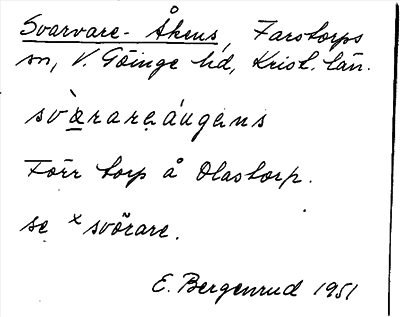 Svarvare-Åkens, Farstorps
sn, V. Göinge hd, Krist. län.
svàrareáugens
Förr torp å Olastorp.
se ˣsvörare.
E. Bergenrud 1951